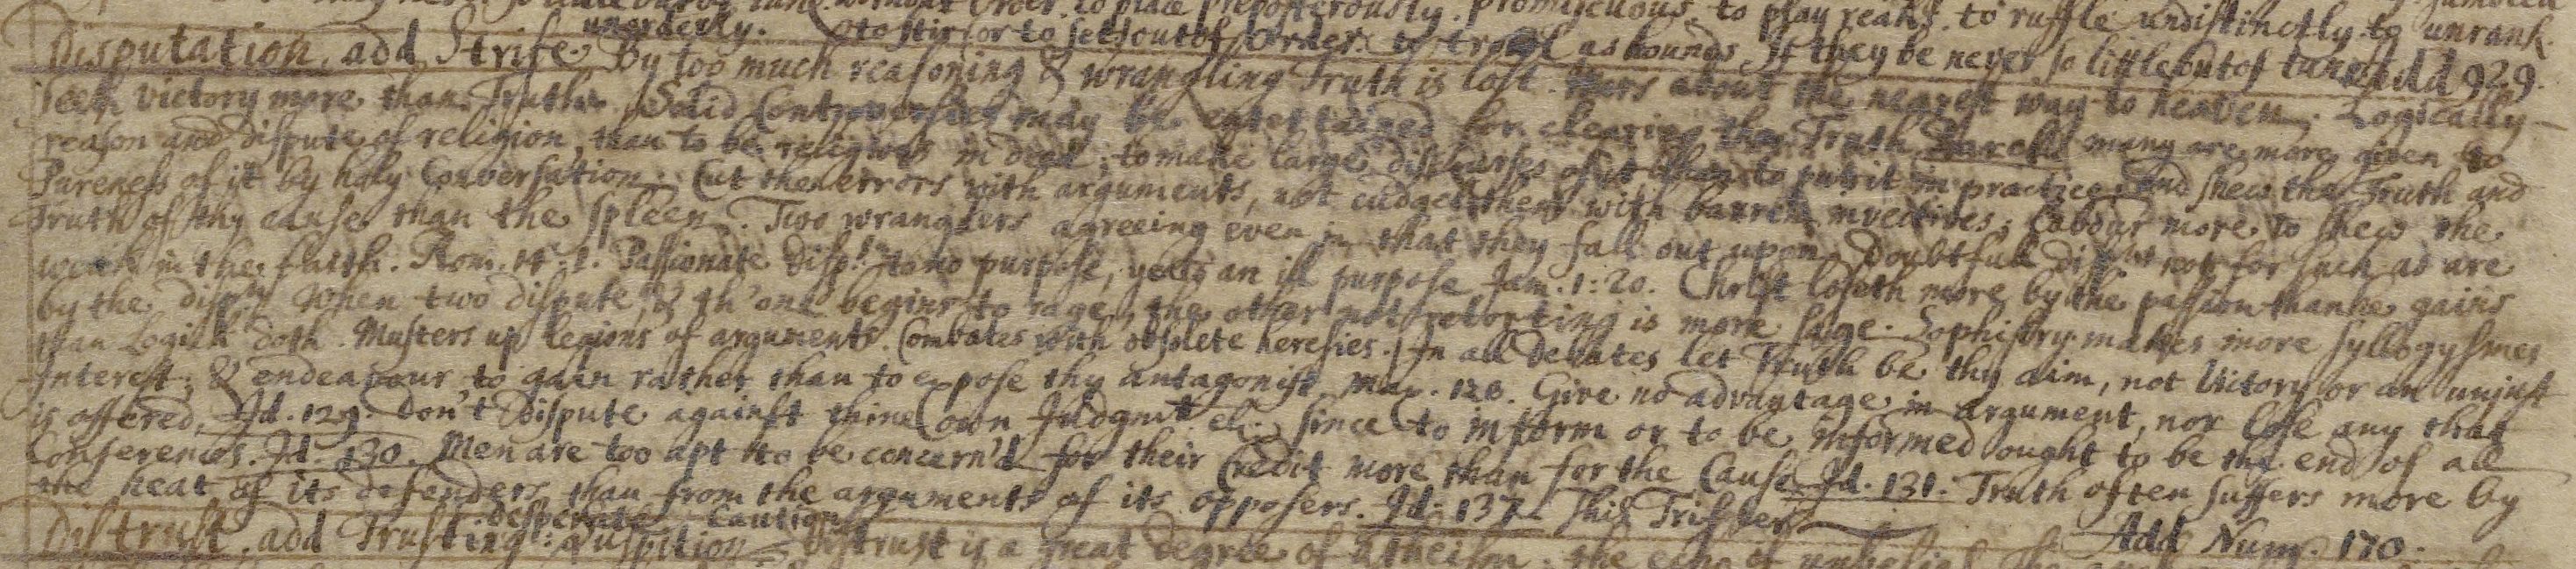 to place preposterously. promiscuous. to play reaks. to ruffle undistinctly. to unrank
unorderly. to stir (or to set) out of Order. as hounds, If they be never so little out of tune Add 929.
Disputation, add Strife By too much reasoning & wrangling Truth is lost. about the nearest way to heaven. Logically
seek Victory more than Truth. Solid Controversies may be entertained for clearing the Truth many are more given to
reason and dispute of religion, than to be religious in deed; to make large discourses of it than to put it in practice, and shew the Truth and
Pureness of it by holy Conversation. Cut the errors with arguments, not cudgel them with barren invectives; Labour more to shew the
Truth of thy cause than the spleen. Two wranglers agreeing even in that they fall out upon. Doubtfull not for such as are
weak in the faith. Rom. 14. 1. Passionate disp.tn to no purpose, yea to an ill purpose Jam. 1: 20. Christ loseth more by the passion than he gains
by the disp.tn When two dispute, & th'one begins to rage, the other not retorting is more sage. Sophistry makes more syllogysmes
than Logick doth. Musters up legions of arguments. Combates with obsolete heresies. In all Debates let Truth be thy aim, not Victory or an unjust
Interest; & endeavour to gain rather than to expose thy antagonist Max. 128. Give no advantage in argument, nor lose any that
is offered, Id. 129. Don't Dispute against thine own Judgmt since to inform or to be informed ought to be the end of all
Conferences. Id. 130. Men are too apt to be concern'd for their Credit more than for the Cause Id. 131. Truth often suffers more by
the heat of its defenders than from the arguments of its opposers. Id. 137 This Trifler
desperate Caution Add Num. 170.
Distrust, add Trusting: suspition Distrust is a great degree of Atheism. the